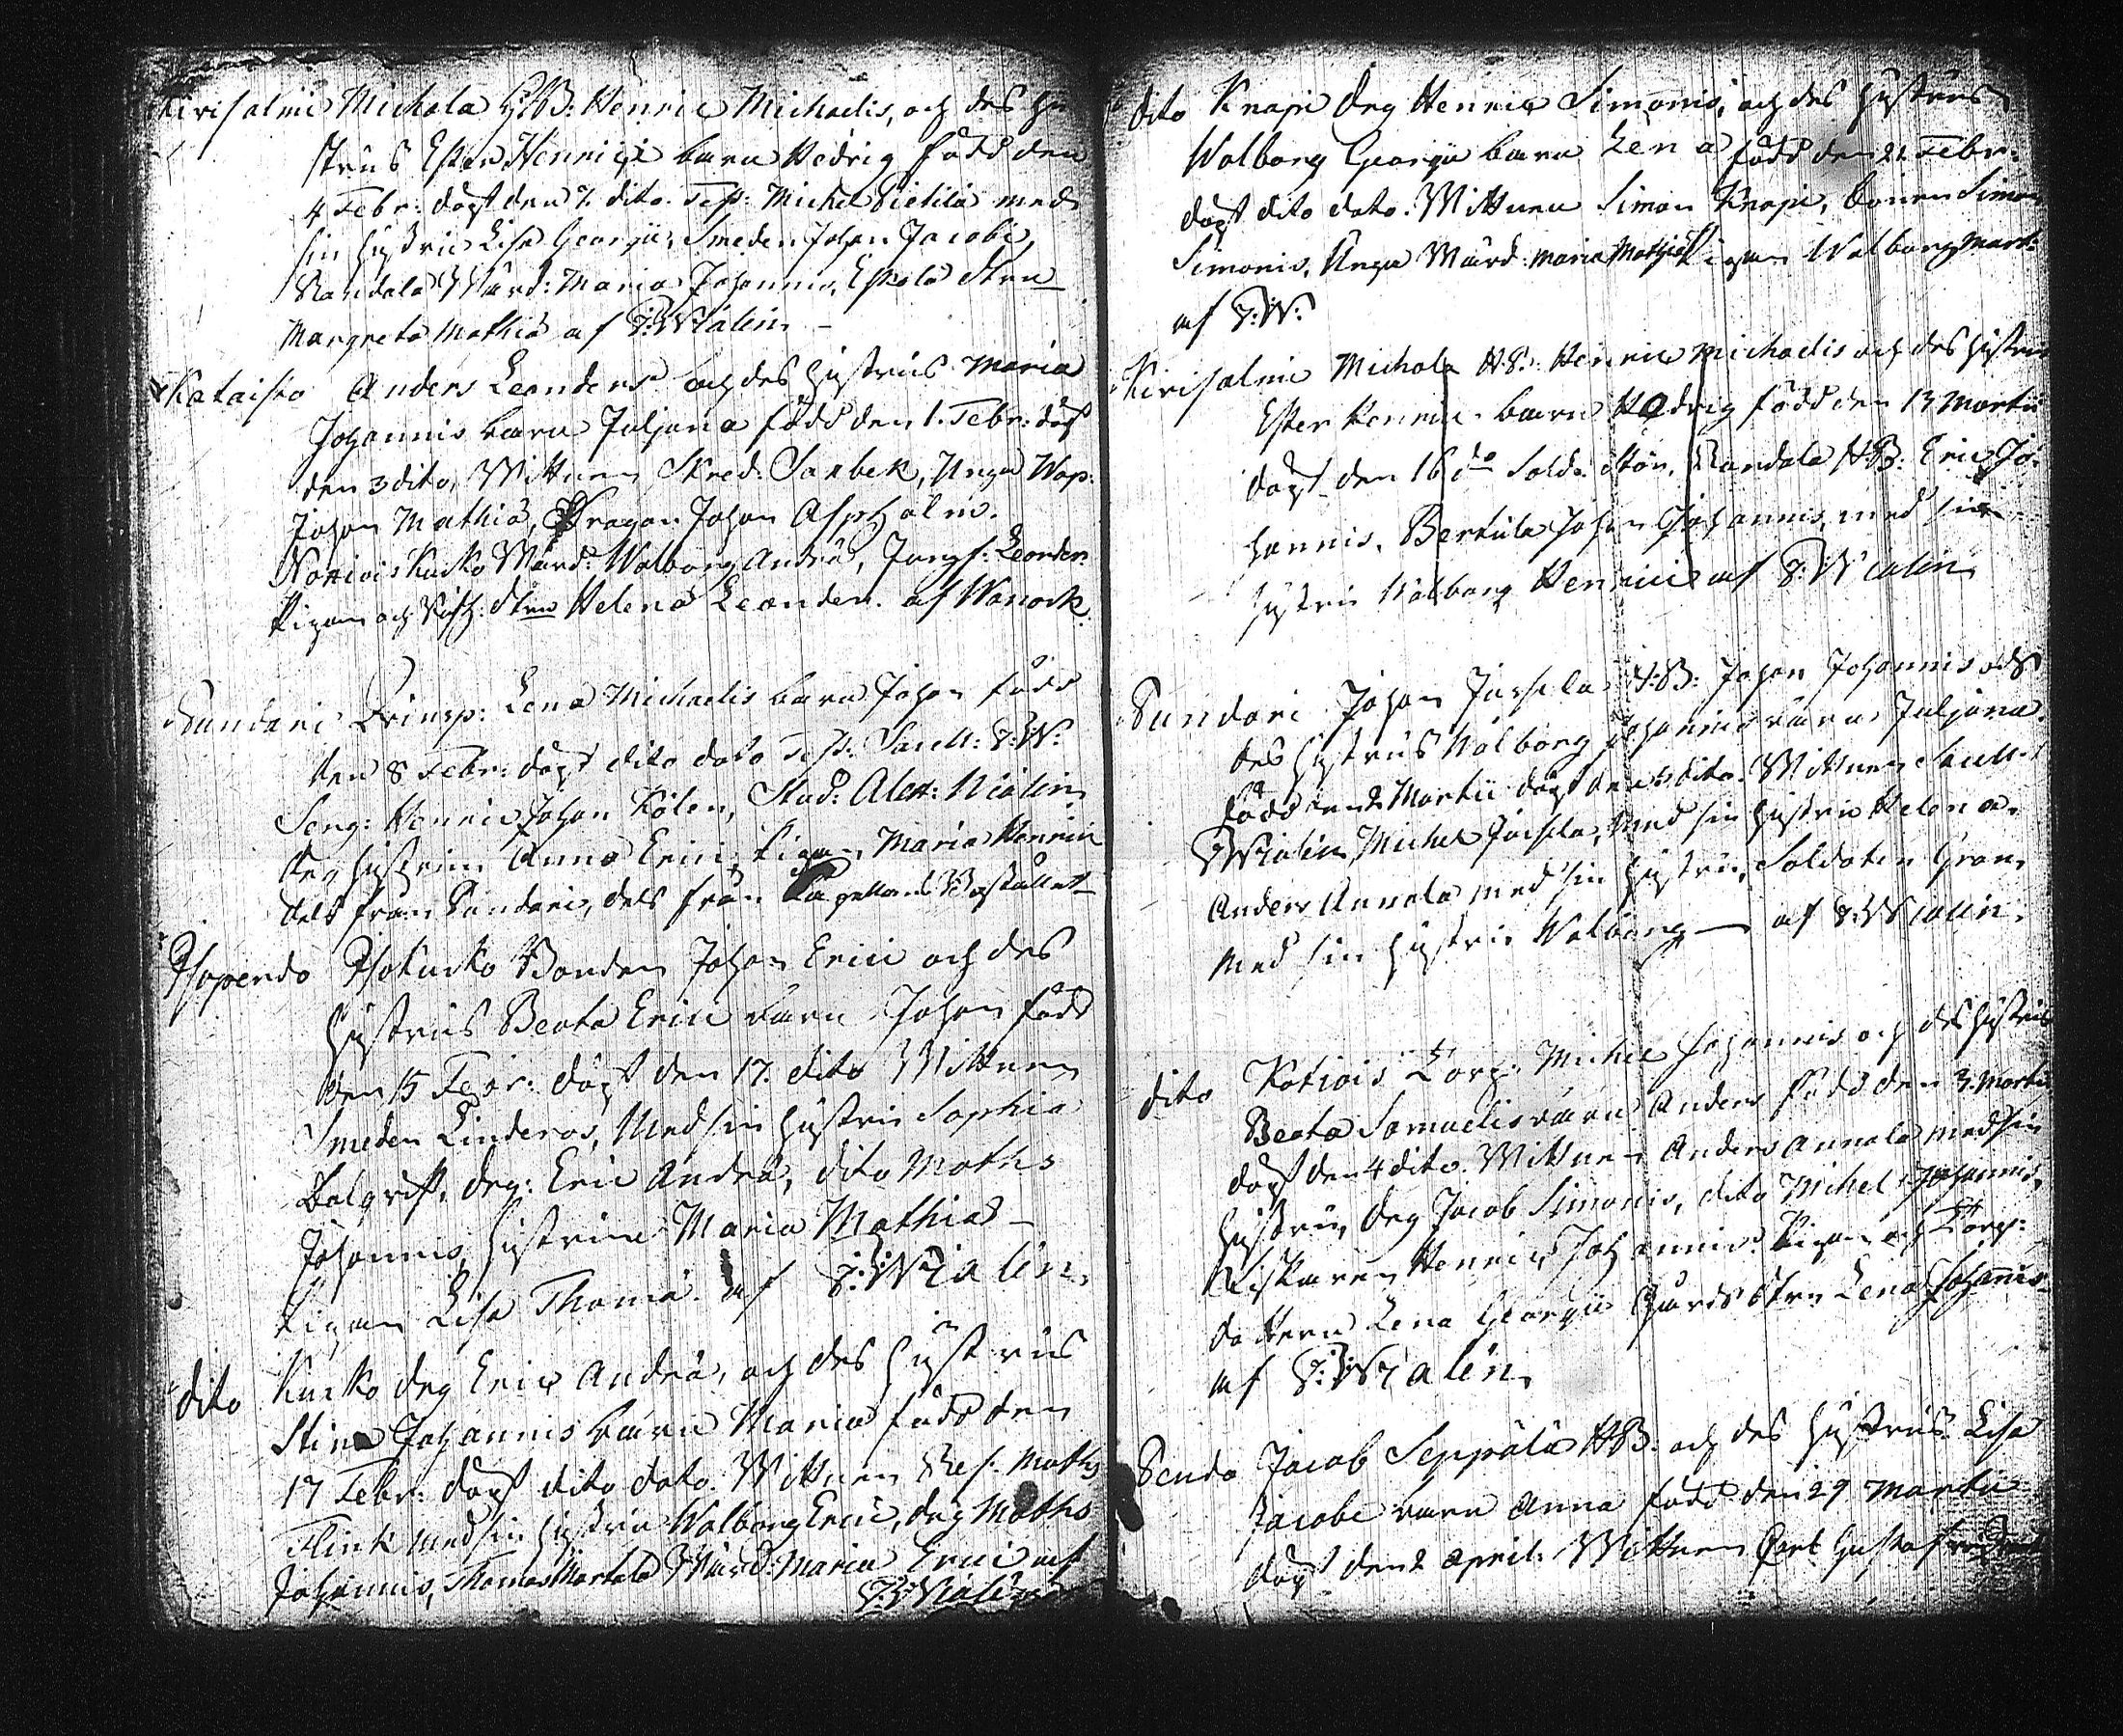 Kirisalmi Michola H:B: Henric Michaelis, och des hu
strus Ester Henrici barn Hedvig född den
4 Febr: döpt den 7. dito. Test: Michel Pietilä med
sin hustru Lisa Georgii, Smeden Johan Jacobi,
Randala Mard: Maria Johannis, Eskola Strn
Margreta Mathiæ af J: Wialén
Kataisto Anders Leanders och des hustrus Maria
Johannis barn Juljana född den 1. Febr: döpt
den 3 dito, Wittnen Skred: Saxbek, Unga
Johan Mathiæ, Dragon Johan Aspholm.
Kurko Mard: Walborg Andræ, Jungf: Leander.
Pigan och Strn Helena Leander. af
Sundari Qvinsp: Lena Michaelis barn Johan född
den 8 Febr: döpt dito dato Test: Sacell: J: W:
Henric Johan Kölen, Stud: Alex: Wialén
Drg hustrun Anna Erici, Pigan Maria Henrici
dels från Sundari, dels från Bostället
Isopendo Isokurko Bonden Johan Erici och des
hustrus Beata Erici barn Johan född
den 15 Febr: döpt den 17. dito Wittnen
Smeden Linderos, med sin hustru Sophia
Dalqvist, drg: Eric Andræ, dito Maths
Johannis, hustrun Maria Mathiæ
Pigan Lisa Thomæ. af J: Wialén.
dito Kurko drg Eric Andræ, och des hustrus
Stina Johannis barn Maria född den
17 Febr: döpt dito dato. Wittnen Res. Maths
Flink med sin hustru Walborg Erici, drg Maths
Johannis, Thomas Martala Mard: Maria Erici af
J: Wialén
dito Knapi drg Henric Simonis, och des hustrus
Walborg Georgii barn Lena född den 21 Febr.
döpt dito dato. Wittnen Simon Knapi, Bonen Simon
Simonis, Unga Mard: Maria Mathiæ Pigan Walborg Mard:
af J: W:
Kirisalmi Michola H:B: Henric Michaelis och des hustru
Ester Henrici barn Hedvig född den 13 Martii
döpt den 16 do Solda Stör, Randala H:B: Eric Jo-
hannis, Bertula Johan Johannis, med sin
hustru Walborg Henrici af J: Wialén
Sundari Johan Jussila H:B: Johan Johannis och
des hustrus Walborg Johannis barn Juljana
född den 2 Martii döpt den dito. Wittnen Sacell:
J: Wialén Michel Jussila, med sin hustru Helena,
Anders Annala med sin hustru, Soldaten Gran
med sin hustru Walborg af J: Wialén.
dito Kotiois Torp: Michel Johannis och des hustrus
Beata Samuelis barn Anders född den 3. Martii
döpt den 4 dito. Wittnen Anders Annala med sin
hustru, drg Jacob Simonis, dito Michel Johannis,
Henric Johannis. Pigan och Torp:
dottern Lena Georgii Gårds Strn Lena Johannis
af J: Wialén
Pendo Jacob Seppälä H:B: och des hustrus Lisa
Jacobi barn Anna född den 29 Martii
döpt den 2 April. Wittnen Carl Gustaf